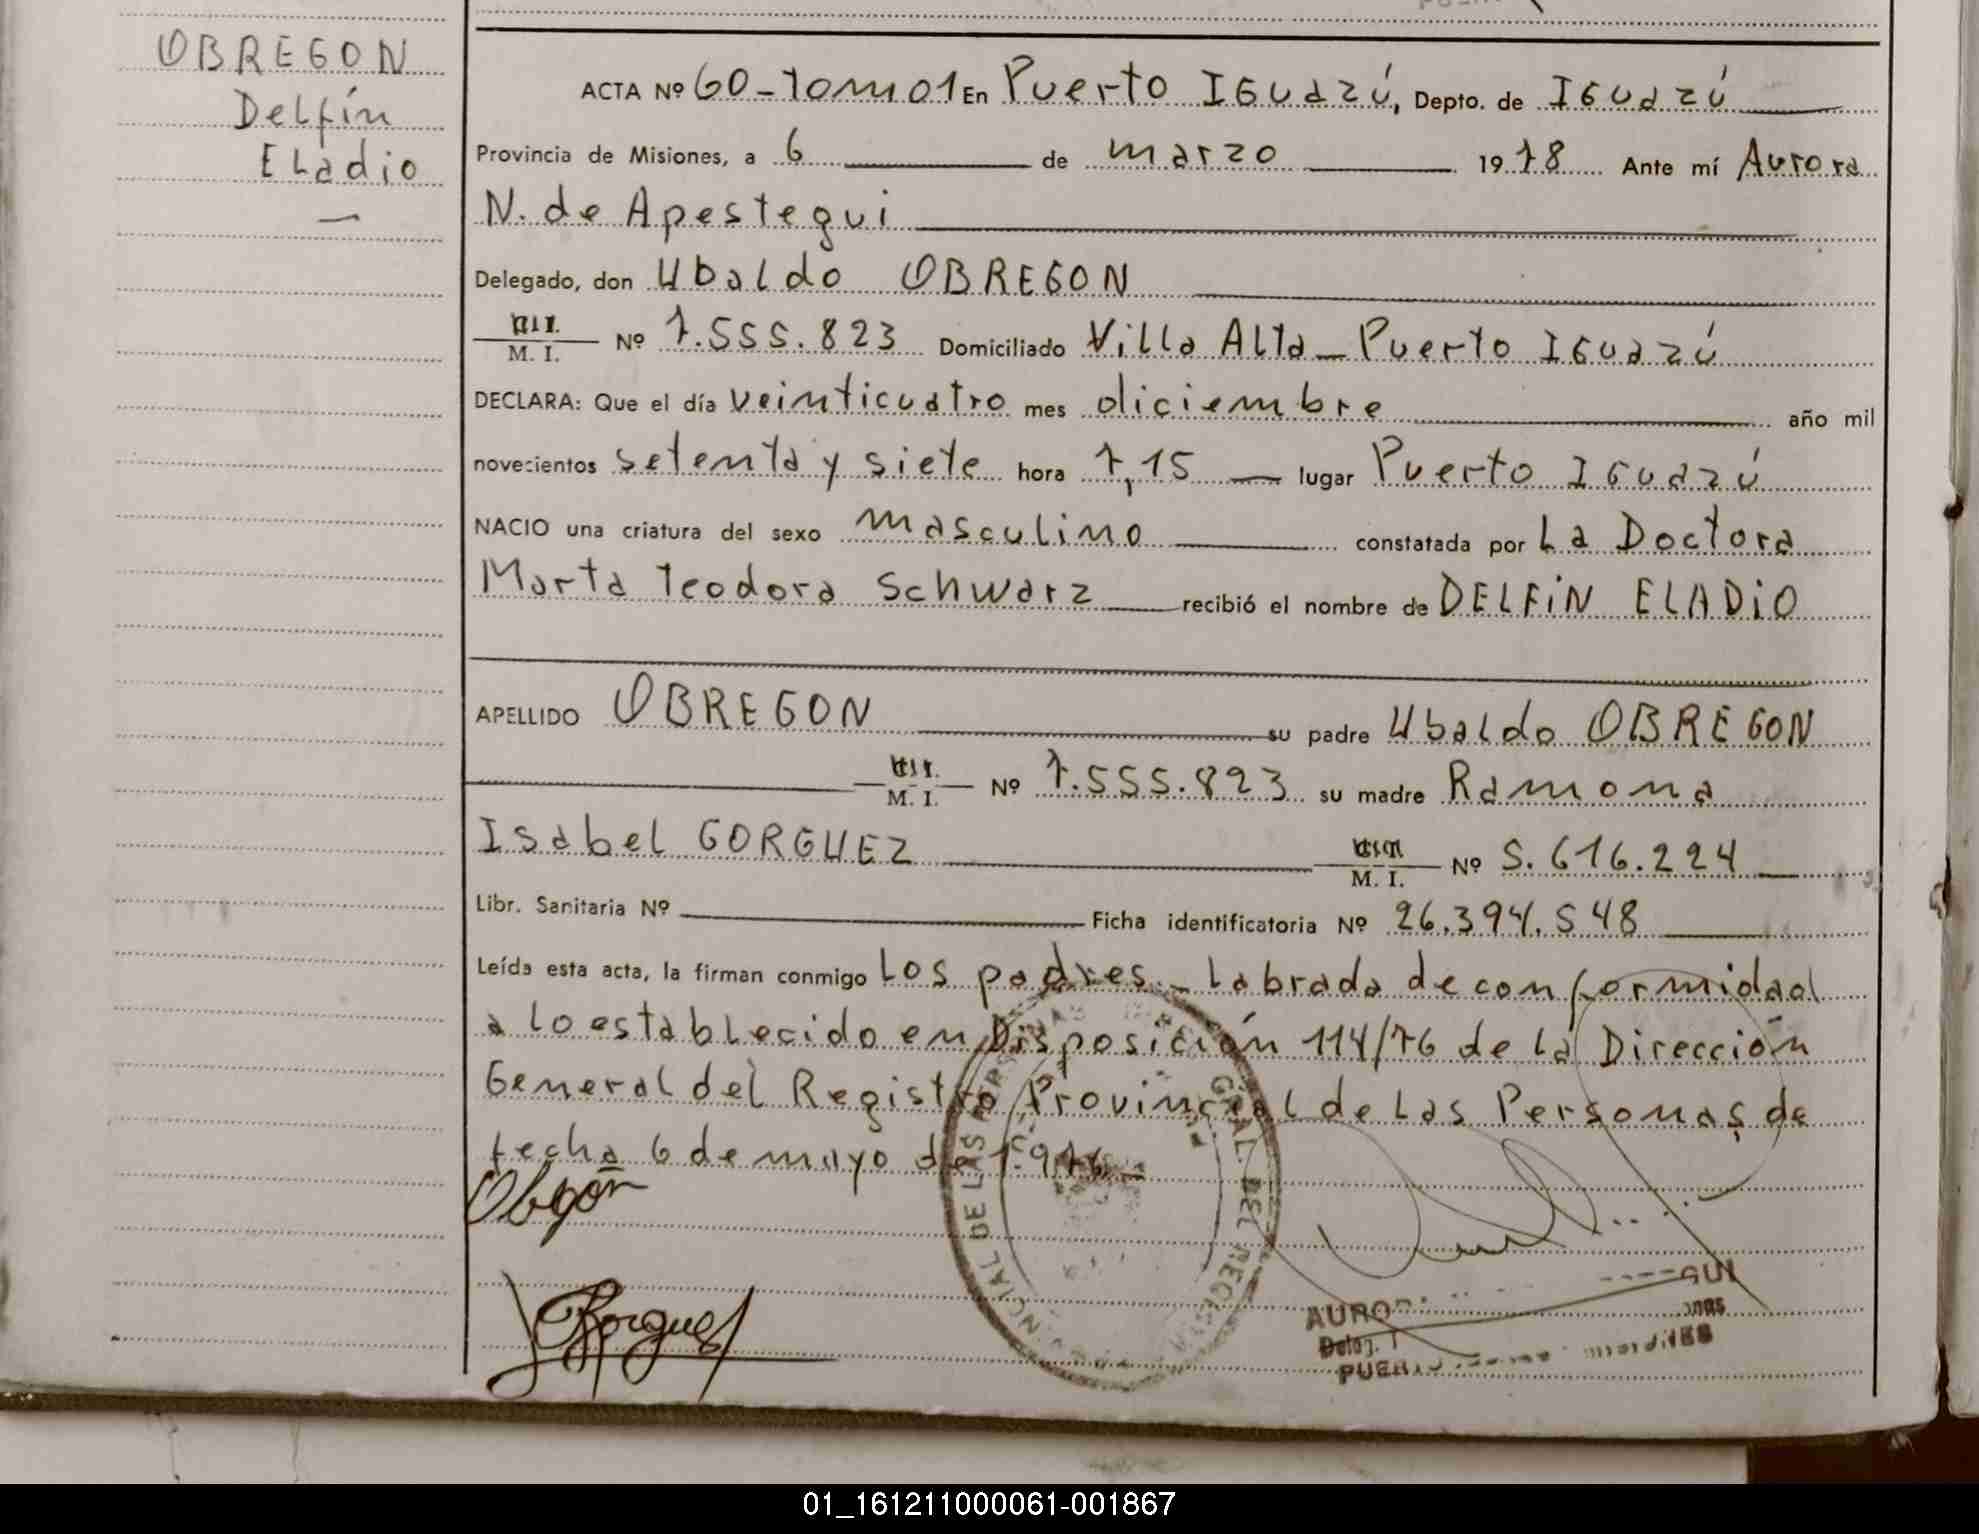 OBREGON
Delfín
Eladio
ACTA Nº 60-Tomo1 En Puerto Iguazú, Depto. de Iguazú
Provincia de Misiones, a 6 de marzo 1978 Ante mí Aurora
N. de Apestegui
Delegado, don Ubaldo OBREGON
M. I. Nº 7.555.823 Domiciliado Villa Alta - Puerto Iguazú
DECLARA: Que el día veinticuatro mes diciembre año mil
novecientos setenta y siete hora 7,15 lugar Puerto Iguazú
NACIO una criatura del sexo masculino constatada por La Doctora
Marta Teodora Schwarz recibió el nombre de DELFÍN ELADIO
APELLIDO OBREGON su padre Ubaldo OBREGON
M. I. Nº 7.555.823 su madre Ramona
Isabel GORGUEZ M. I. Nº 5.616.224
Libr. Sanitaria Nº Ficha identificatoria Nº 26.394.548
Leída esta acta, la firman conmigo Los padres.- Labrada de conformidad
a lo establecido en Disposición 114/76 de la Dirección
General del Registro Provincial de Las Personas de
fecha 6 de mayo de 1.976.-
PROVINCIAL DE LAS PERSONAS GRAL. DEL REGISTRO
01_161211000061-001867